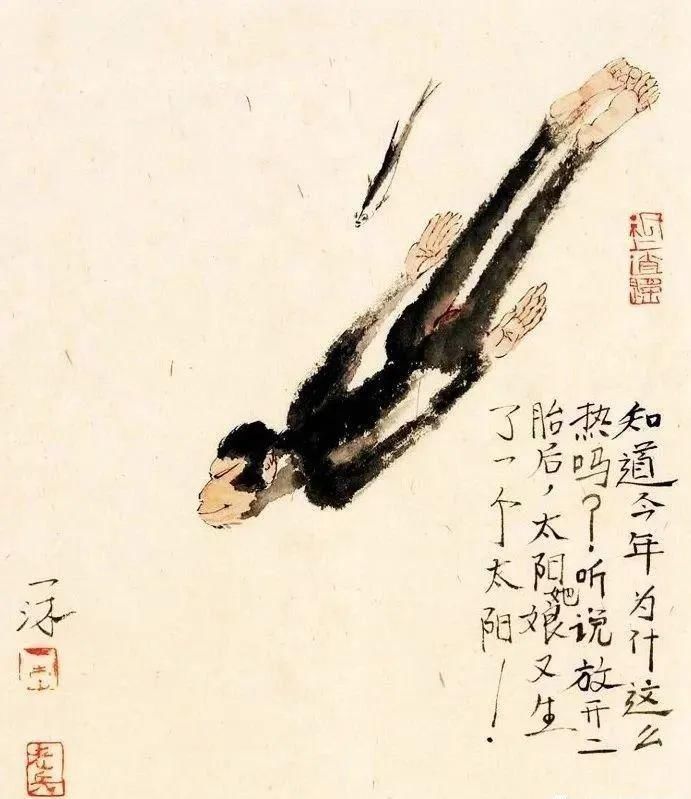 知道今年为什么这么
热吗？听说放开二
胎后，太阳她娘又生
了一个太阳！
一沐